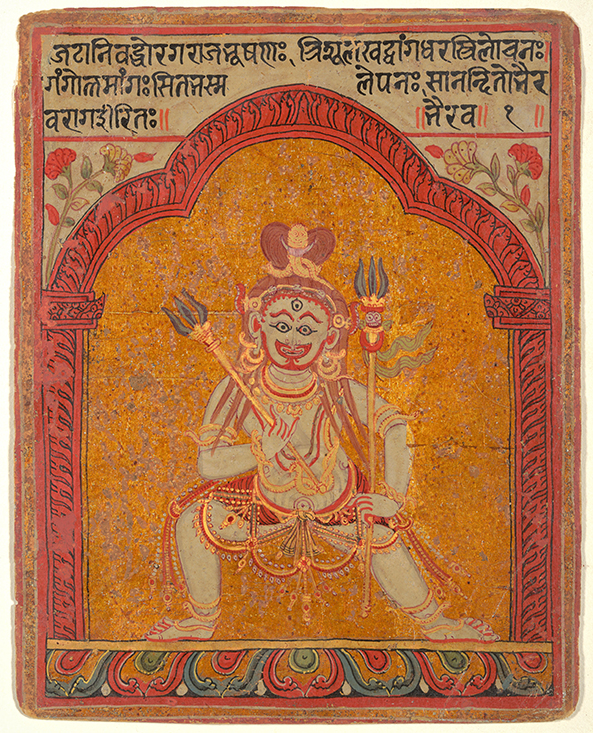 जटानिबद्धोरगराजभूषणः त्रिशूलखद्वांगधरस्त्रिलोचनः
गंगोत्तमांगः सितभस्म लेपनः सानन्दितो भैर
वराग ईरितः ॥ ॥ भैरव ॥ १ ॥